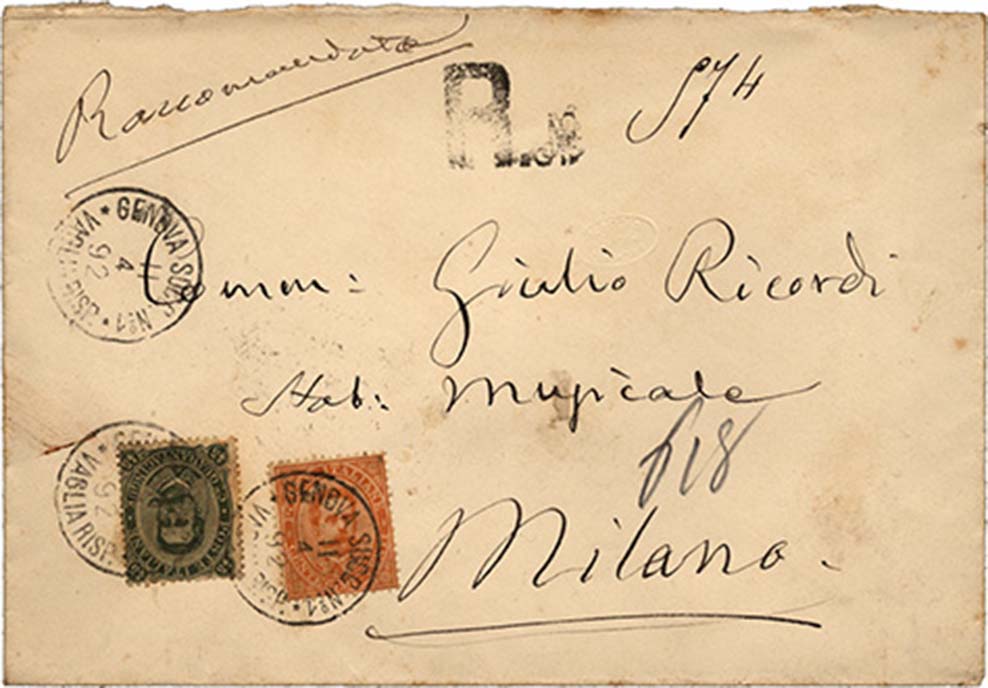 Raccomandata
R. No 574
GENOVA SUCC. No 1
11
4
92
VAGLIA RISP.
Comm: Giulio Ricordi
Stab: Musicale
618
Milano.
VAGLIA RISP.
92
GENOVA SUCC. No 1
11
4
92